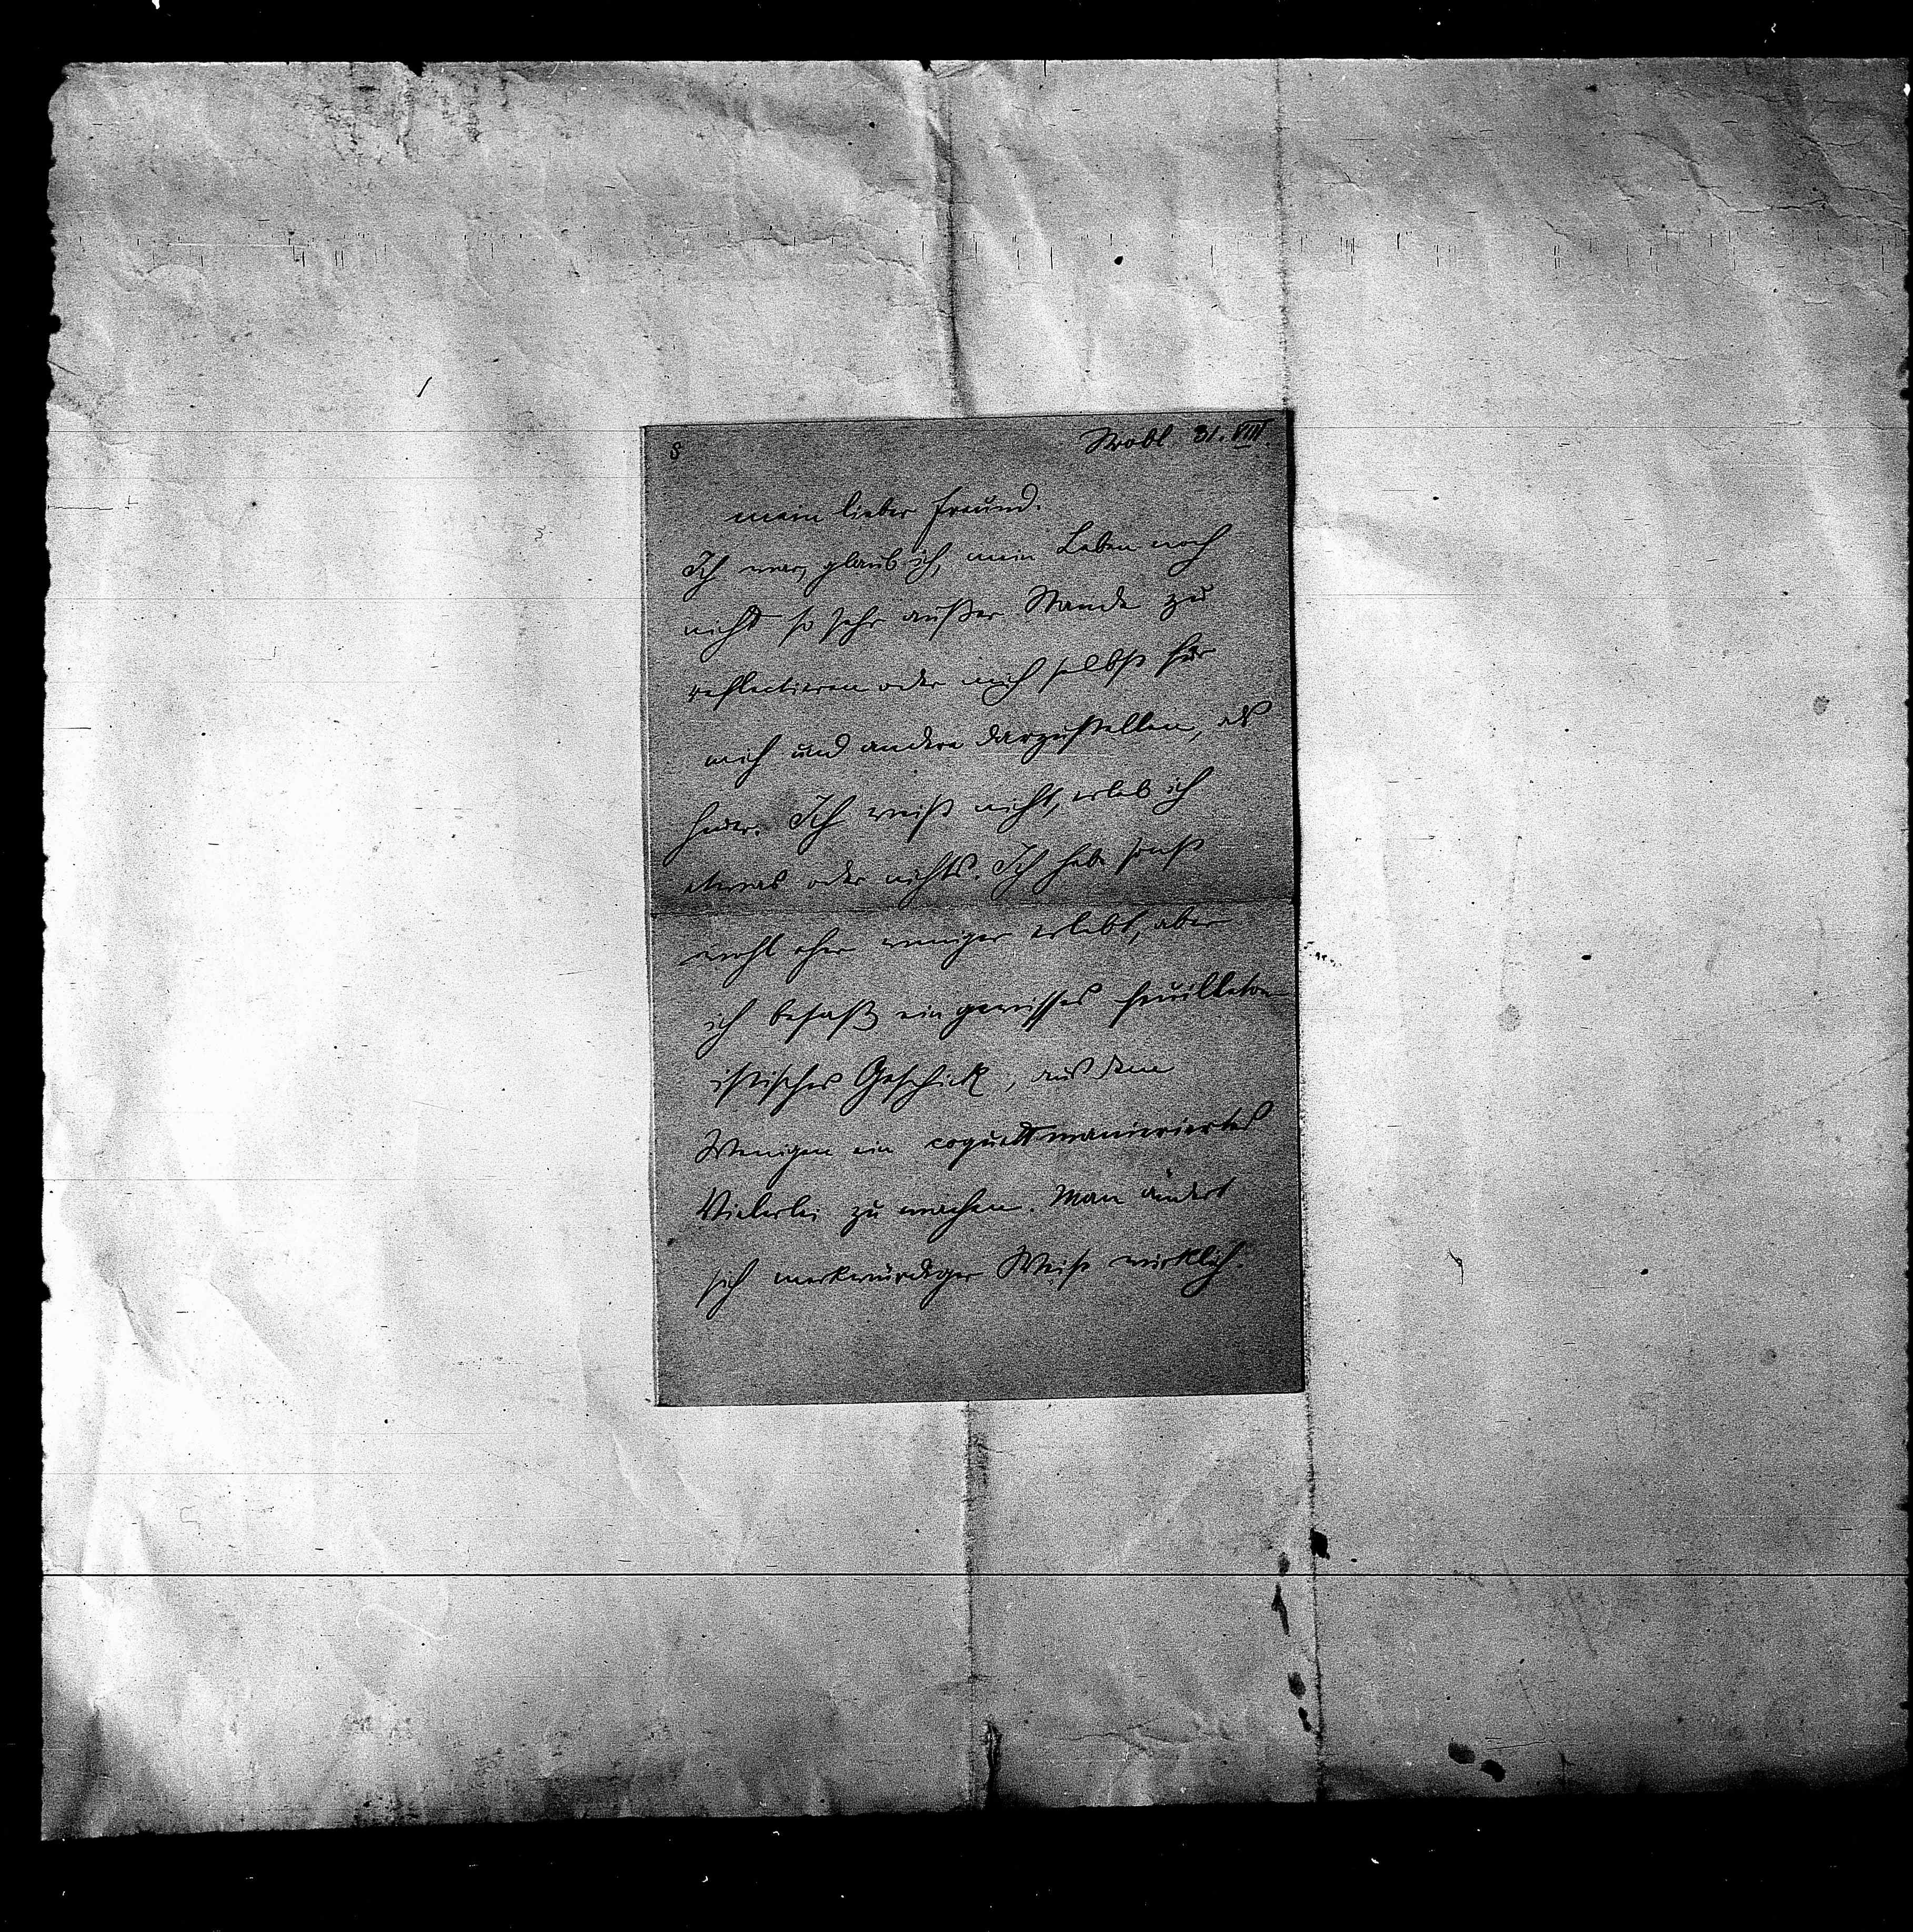 8
Strobl 31. VIII.
mein lieber Freund.
Ich war, glaub ich, mein Leben noch
nicht so sehr außer Stande zu
reflectieren oder mich selbst für
mich und andere darzustellen, als
heuer. Ich weiß nicht, erleb ich
etwas oder nichts. Ich habe sonst
wohl eher weniger erlebt, aber
ich besaß ein gewisses feuilleton-
istisches Geschick, aus dem
Wenigen ein coquett manieriertes
Vielerlei zu machen. Man ändert
sich merkwürdiger Weise wirklich.